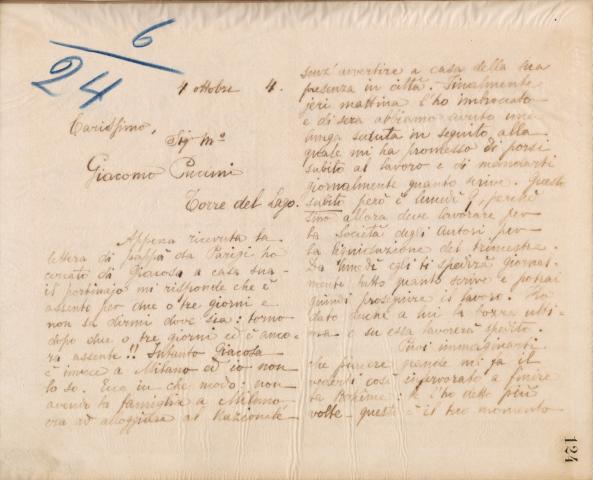 6
24
1 ottobre 4.
Carissimo,
Sig. Mo
Giacomo Puccini
Torre del Lago.
Appena ricevuta la
lettera di Pappà da Parigi ho
cercato di Giacosa a casa sua -
il portinajo mi risponde che è
assente per due o tre giorni e
non sa dirmi dove sia: torno
dopo due o tre giorni ed è anco-
ra assente!! Intanto Giacosa
è invece a Milano ed io non
lo so. Ecco in che modo: non
avendo la famiglia a Milano
va ad alloggiare al Nazionale
senz'avvertire a casa della sua
presenza in città. Finalmente
jeri mattina l'ho imbroccato
e di sera abbiamo avuto una
lunga seduta in seguito alla
quale mi ha promesso di porsi
subito al lavoro e di mandarti
giornalmente quanto scrive. Questo
subito però è lunedì, perchè
sino allora deve lavorare per
la Società degli Autori per
la liquidazione del trimestre.
Da lunedì egli ti spedirà giornal-
mente tutto quanto scrive e potrai
quindi proseguire il lavoro. Ho
dato anche a lui la bozza ulti-
ma e su essa lavorerà spedito.
Puoi immaginarti
che piacere grande mi fa il
vederti così infervorato a finire
la Bohème: te l'ho detto più
volte - questo è il tuo momento
124